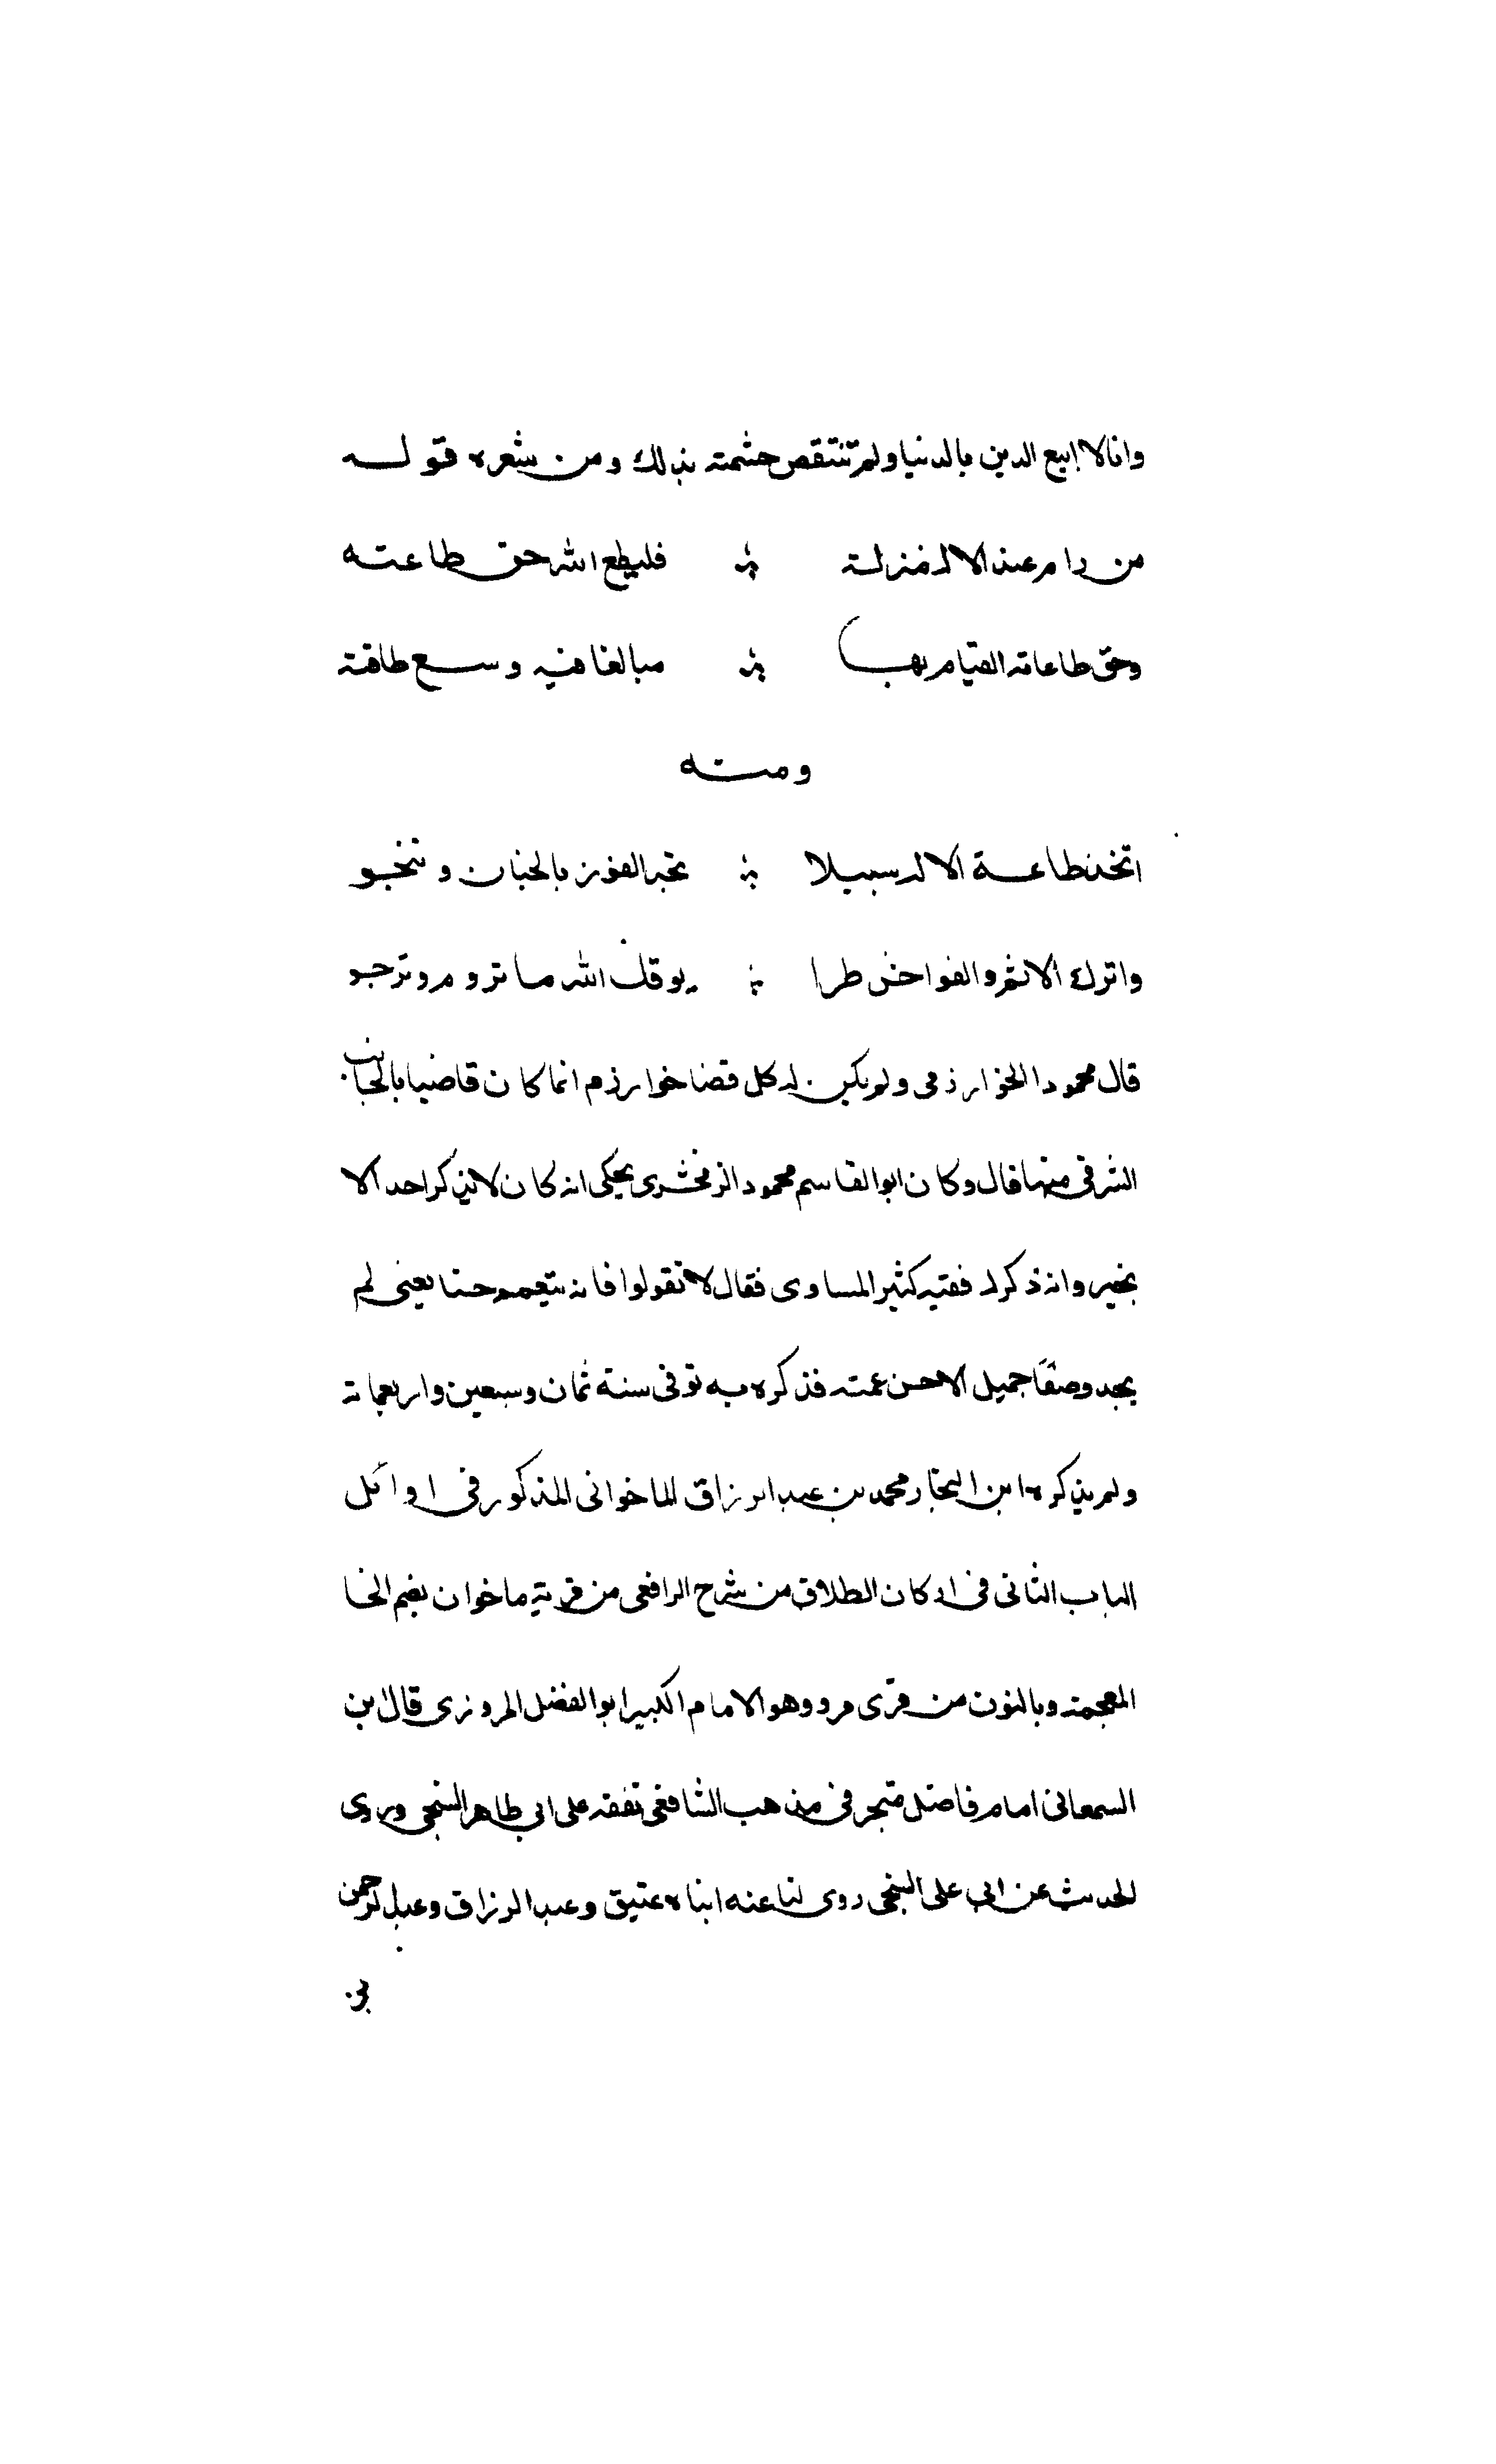 وانا لا ابيع الدين بالدنيا ولم تنتقص حشمته بذلك ومن شعره قوله
من رام عند الاله منزلة فليطع الله حق طاعته
وحق طاعاته القيام بها مبالغا فيه وسع طاقته
ومنه
اتخذ طاعة الاله سبيلا تجد الفوز بالجنان وتنجو
واترك الاثم والفواحش طرا يوقك الله ما تروم وترجو
قال محمود الخوارزمى ولم يكن له كل قضا خوارزم انما كان قاضيا بالجانب
الشرقى منها قال وكان ابو القاسم محمود الزمخشرى يحكى انه كان لا يذكر احد الا
بخير وانه ذكر له فقيه كثير المساوى فقال لا تقولوا فانه يتعمم حسنا يعنى لم
يجد وصفًا جميل الا حسن عمته فذكره به توفى سنة ثمان وسبعين واربعماية
ولم يذكره ابن النجار محمد بن عبد الرزاق الماخوانى المذكور فى اوائل
الباب الثانى فى اركان الطلاق من شرح الرافعى من قرية ماخوان بضم الخا
المعجمة وبالنون من قرى مرو وهو الامام الكبير ابو الفضل المروزى قال ابن
السمعانى امام فاضل متبحر فى مذهب الشافعى تفقه على ابى طاهر السنجى وروى
الحديث عن ابى على السنجى روى لنا عنه ابناه عتيق وعبد الرزاق وعبد الرحمن
بن